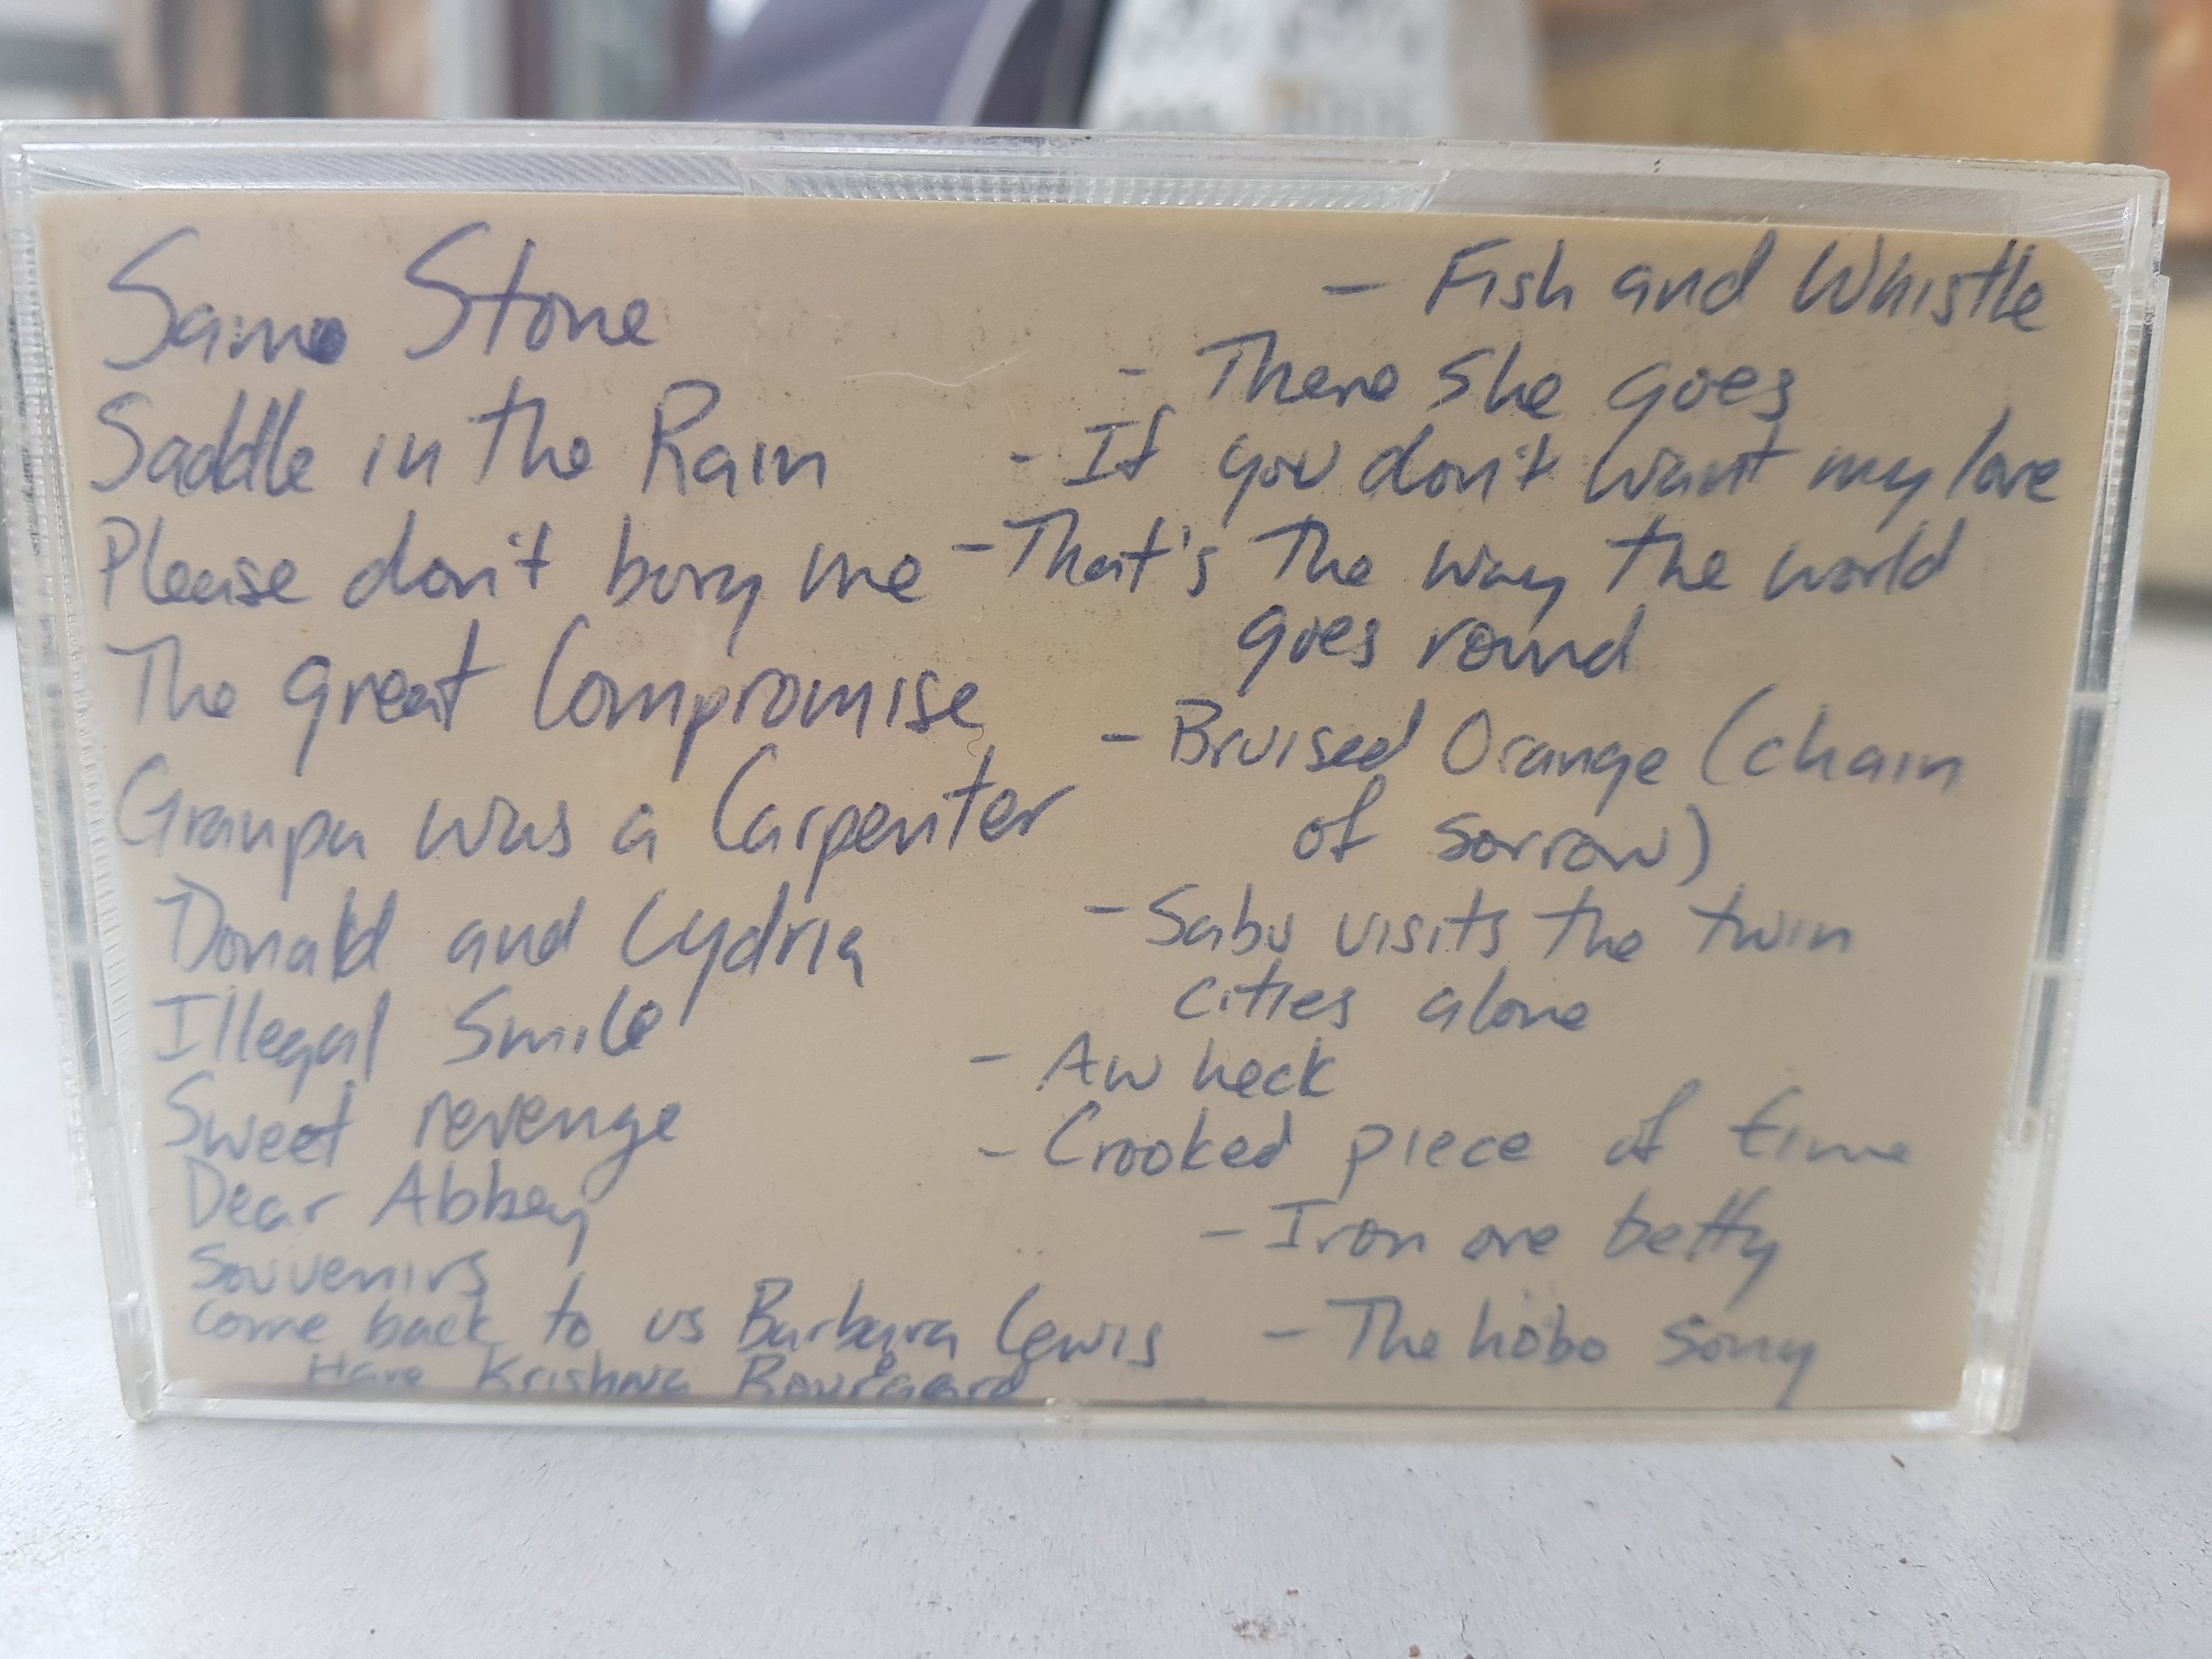 Samo Stone
Saddle in the Rain
Please don't bury me
The great Compromise
Granpa was a Carpenter
Donald and Lydria
Illegal Smile
Sweet revenge
Dear Abbey
Souvenirs
Come back to us Barbara Lewis
Hare Krishna Bouregard
- Fish and Whistle
- There she goes
- If you don't want my love
- That's the way the world
goes round
- Bruised Orange (chain
of sorrow)
- Sabu visits the twin
cities alone
- Aw heck
- Crooked piece of time
- Iron ore betty
- The hobo song